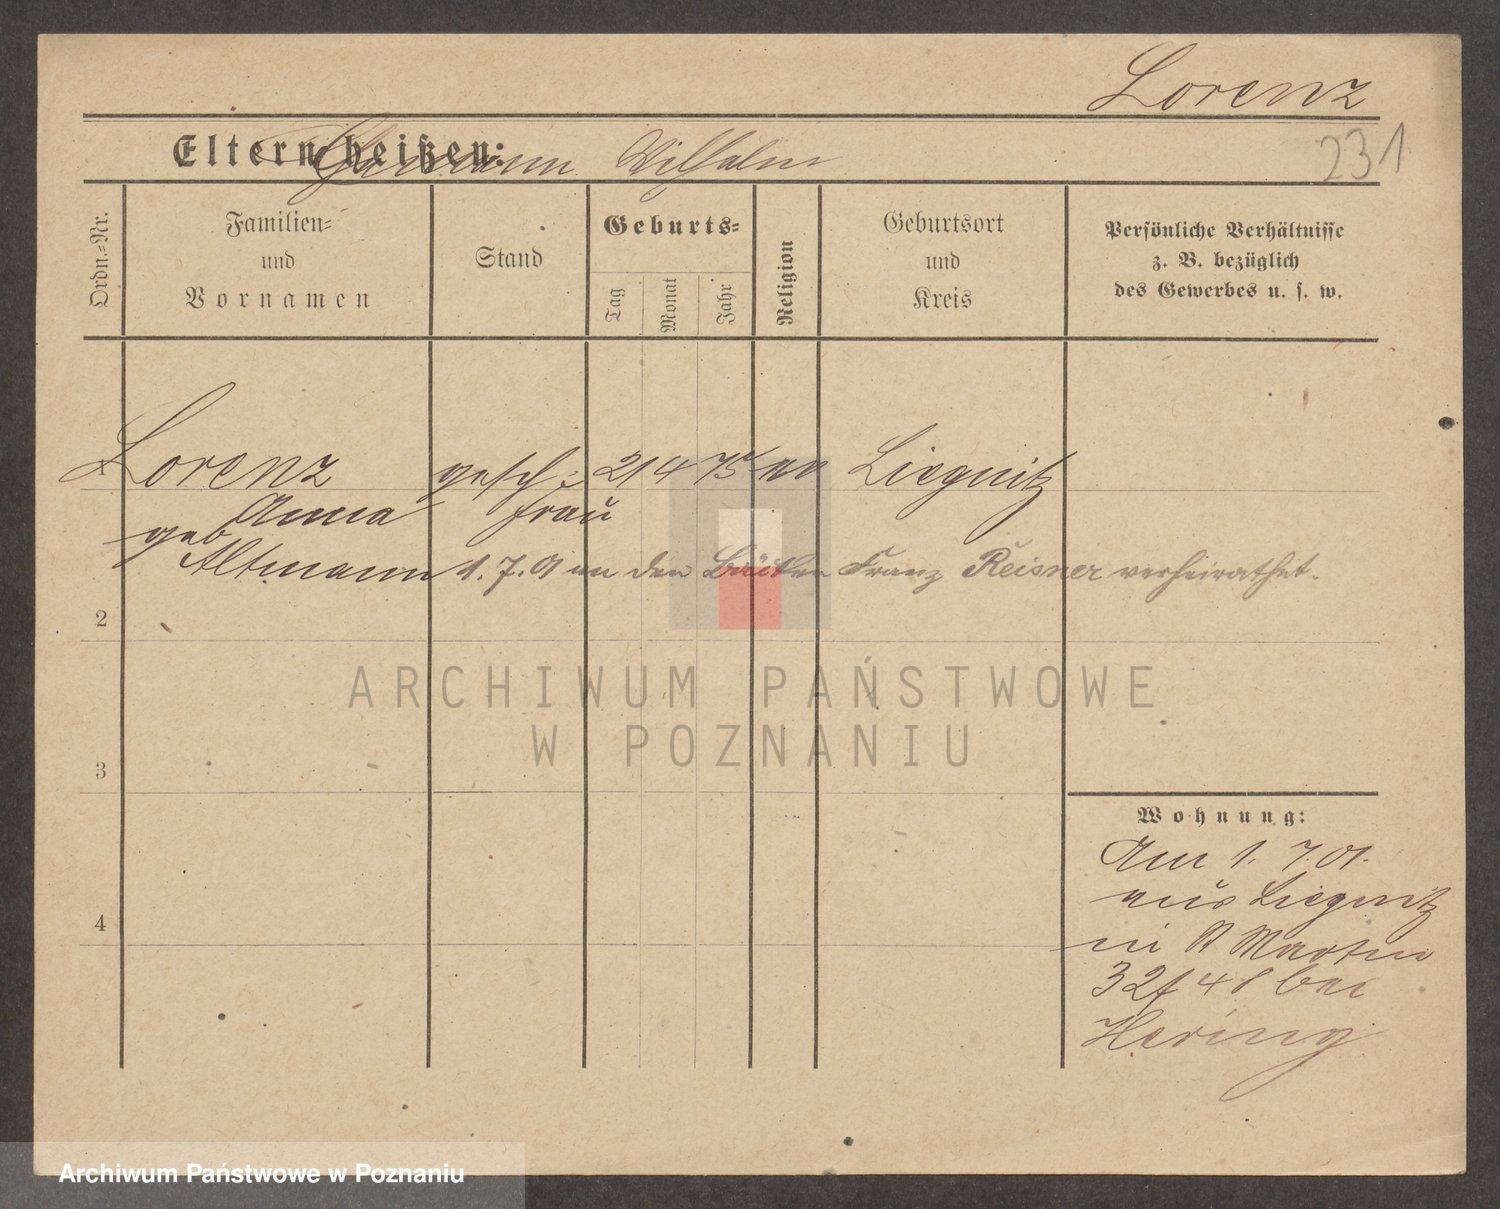 Lorenz
231
Eltern heißen: Wilhelm
Ordn.-Nr.
Familien-
und
Vornamen
Stand
Geburts-
Tag
Monat
Jahr
Religion
Geburtsort
und
Kreis
Persönliche Verhältnisse
z. B. bezüglich
des Gewerbes u. s. w.
1 Lorenz gesch: 21 4 75 Liegnitz
Anna frau
geb
Altmann 1. 7. 01 an den Bäcker Franz Reisner verheirathet.
2
3
4
Wohnung:
Am 1. 7. 01.
aus Liegnitz
in St Martin
32 bei
Hering
ARCHIWUM PAŃSTWOWE
W POZNANIU
Archiwum Państwowe w Poznaniu